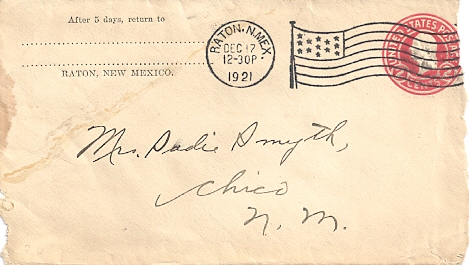 After 5 days, return to
RATON, NEW MEXICO.
RATON, N. MEX.
DEC 17
12-30P
1921
UNITED STATES POSTAGE
CENTS
Mrs. Sadie Smyth,
Chico
N. M.